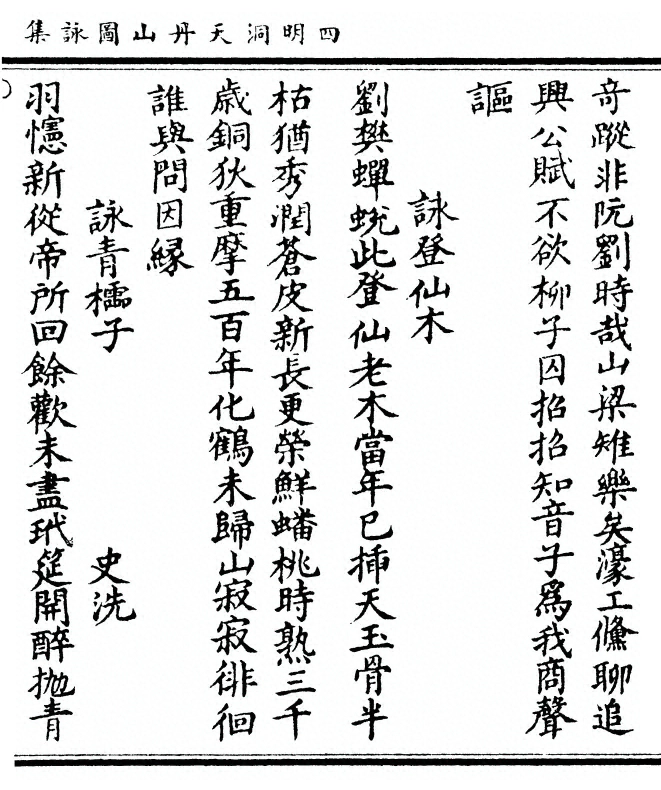 四明洞天丹山圖詠集
奇蹤非阮劉時哉山梁雉樂矣濠工鯈聊追
興公賦不欲柳子囚招招知音子爲我商聲
謳
詠登仙木
劉樊蟬蛻此登仙老木當年已揷天玉骨半
枯猶秀潤蒼皮新長更榮鮮蟠桃時熟三千
歳銅狄重摩五百年化鶴未歸山寂寂徘徊
誰與問因緣
詠青櫺子
史洗
羽幰新從帝所回餘歡未盡玳筵開醉拋青